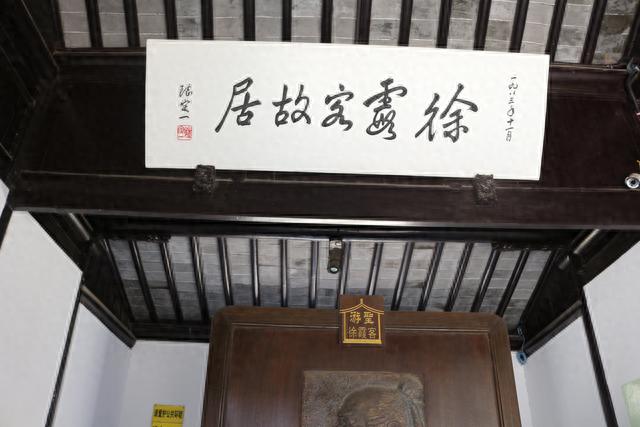 一九八三年十一月
徐霞客故居
張定一
游聖
徐霞客